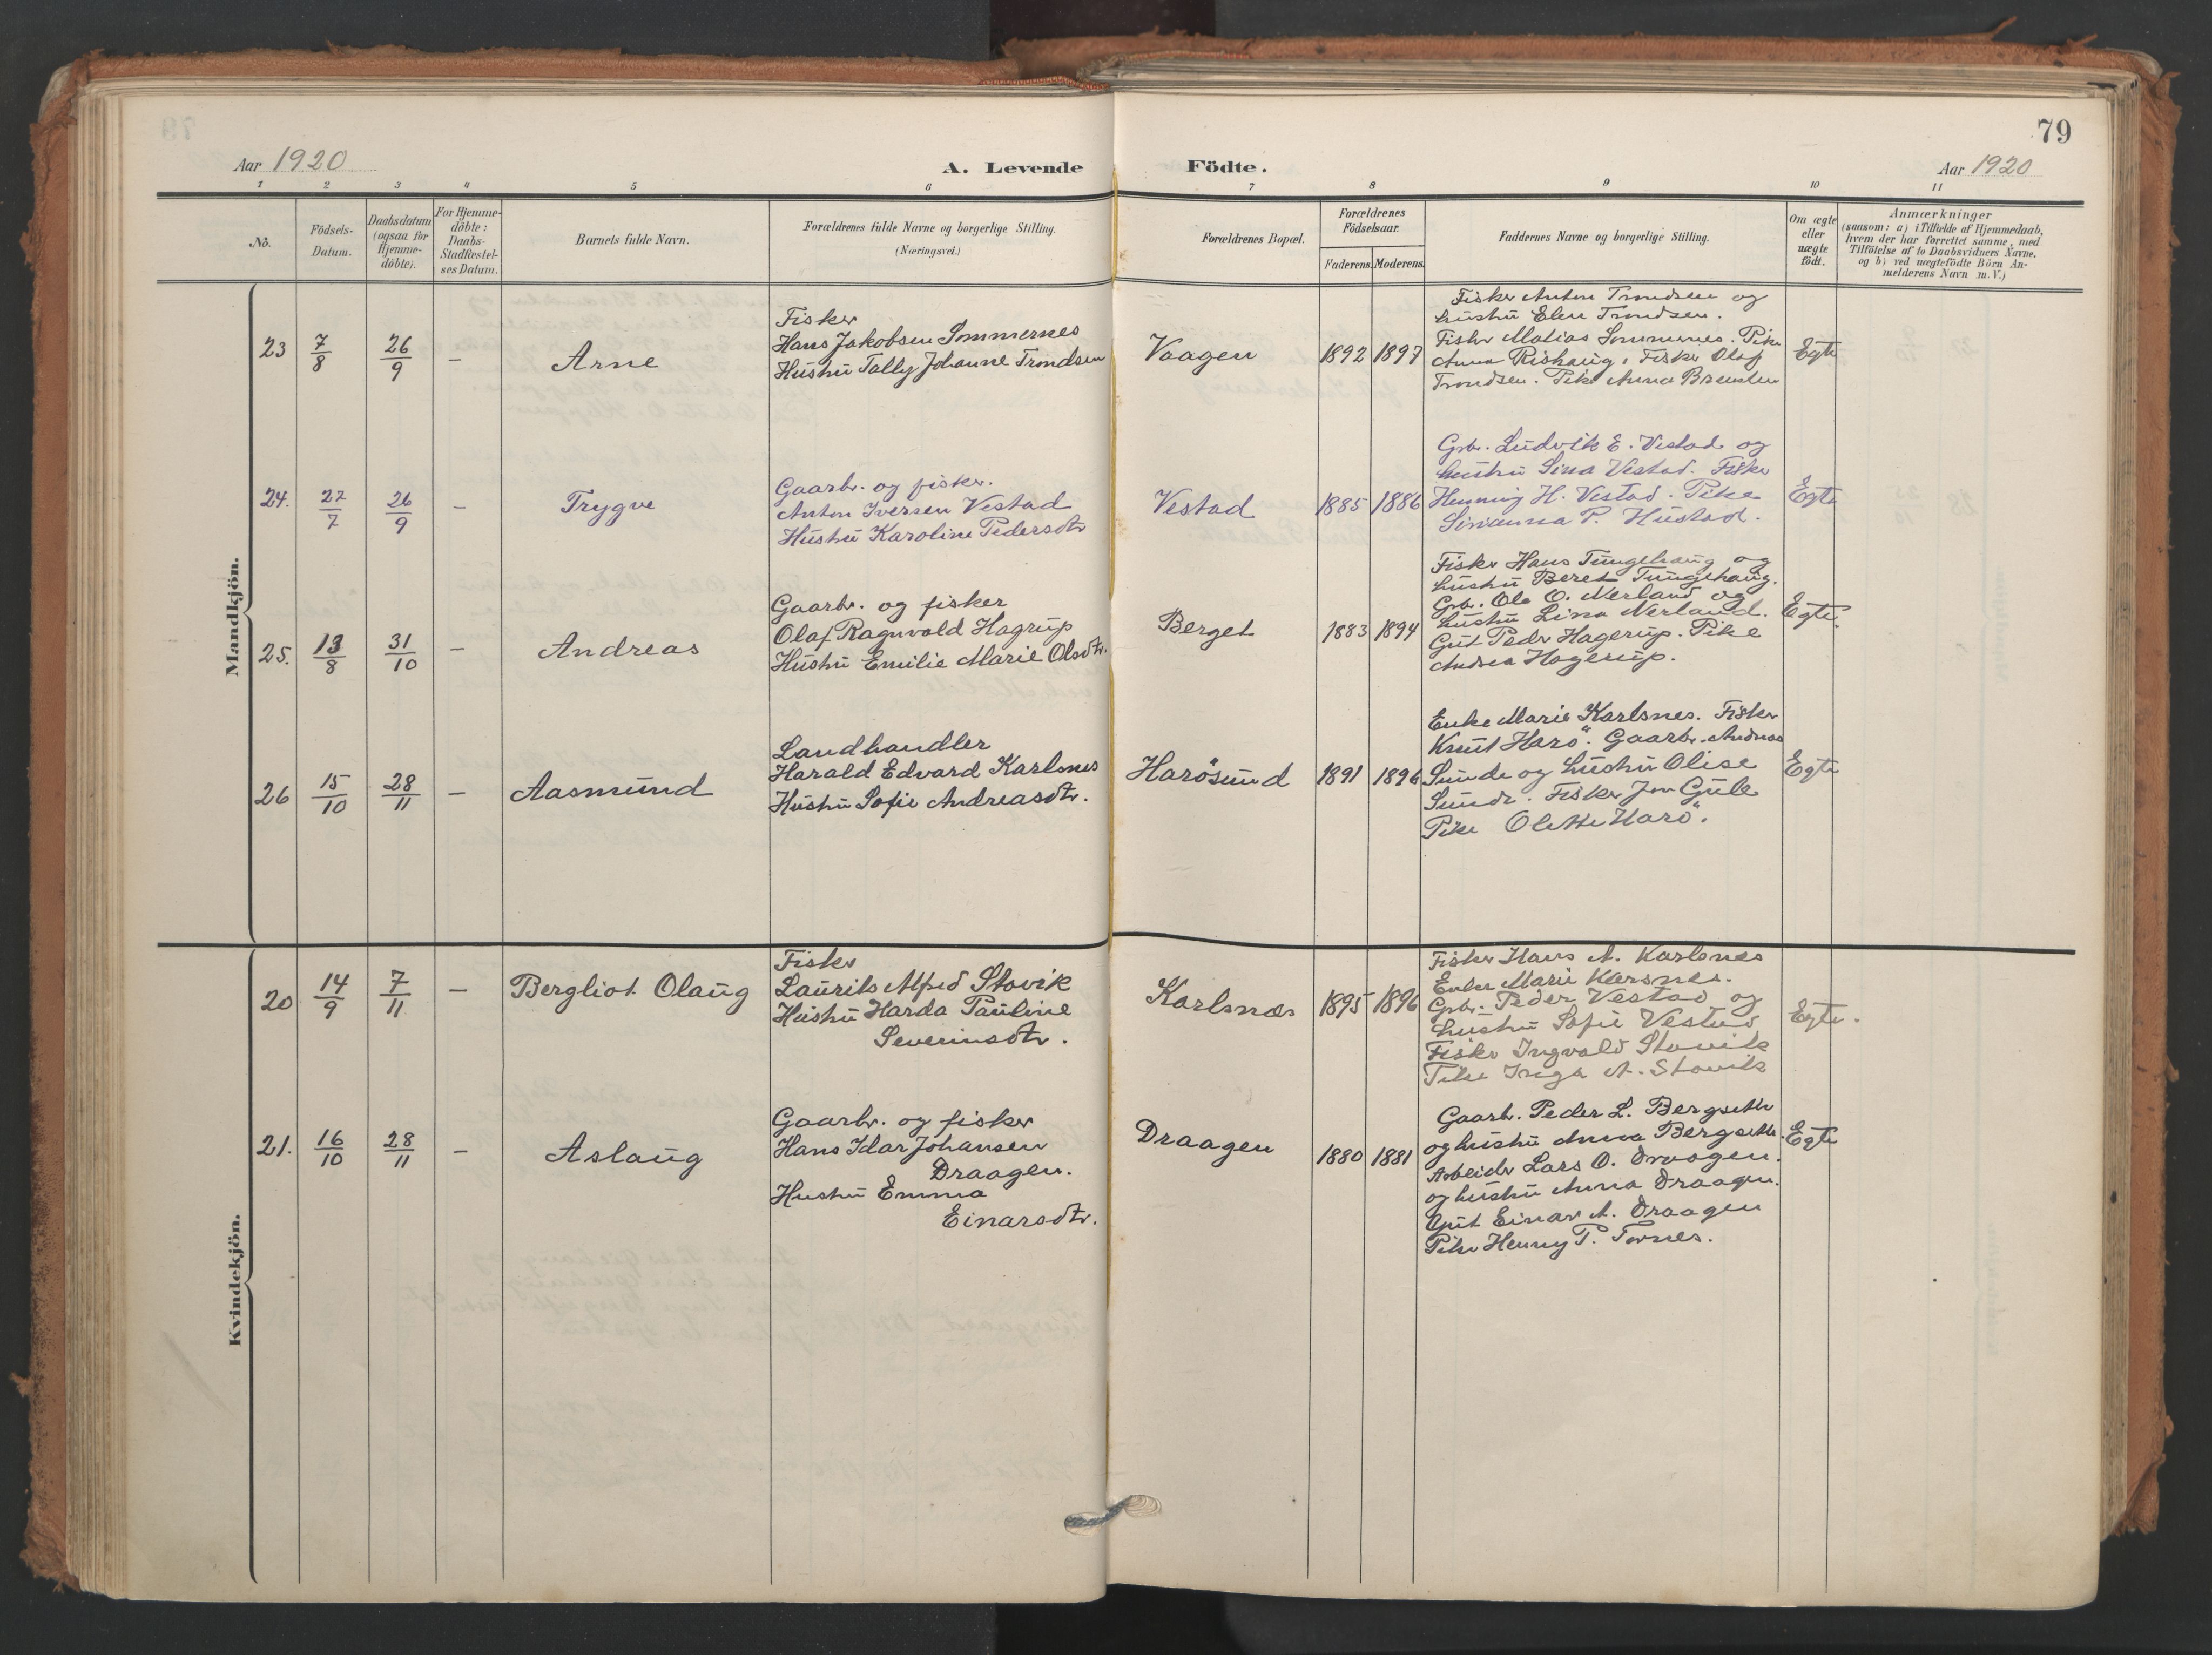 79
Aar 1920
A. Levende Födte.
Aar 1920
1 2 3 4 5 6 7 8 9 10 11
No.
Födsels-
Datum.
Daabsdatum
(ogsaa for
Hjemme-
döbte).
For Hjemme-
döbte:
Daabs-
Stadfæstel-
ses Datum.
Barnets fulde Navn.
Forældrenes fulde Navne og borgerlige Stilling.
(Næringsvei.)
Forældrenes Bopæl.
Forældrenes
Födselsaar.
Faderens. Moderens.
Faddernes Navne og borgerlige Stilling.
Om ægte
eller
uægte
födt.
Anmærkninger
(saasom: a) i Tilfælde af Hjemmedaab,
hvem der har forrettet samme, med
Tilföielse af to Daabsvidners Navne,
og b) ved uægtefödte Börn An-
melderens Navn m. V.)
Mandkjön.
23 7/8 26/9 — Arne
Fisker
Hans Jakobsen Sommernes
Hustru Tally Johanne Trondsen
Vaagen 1892 1897
Fisker Anton Trondsen og
hustru Elen Trondsen.
Fisker Matias Sommernes. Pike
Anna Rishaug. Fisker Olaf
Trondsen. Pike Anna
Egte
24. 27/7 26/9 — Trygve
Gaarbr. og fisker.
Anton Iversen Vestad
Hustru Karoline Pedersdtr
Vestad 1885 1886
Grbr. Ludvik E. Vestad og
hustru Sina Vestad. Fisker
Henning H. Vestad. Pike
P. Hustad.
Egte
25. 13/8 31/10 — Andreas
Gaarbr. og fisker
Olaf Ragnvald Hagrup
Hustru Emilie Marie Olsdtr.
Berget 1883 1894
Fisker Hans Tungehaug og
hustru Beret Tungehaug.
Grbr. Ole O. Nerland og
hustru Lina Nerland.
Gut Peder Hagerup. Pike
Andrea Hagerup.
Egte.
26 15/10 28/11 — Aasmund
Landhandler
Harald Edvard Karlsnes
Hustru Sofie Andreasdtr.
Harösund 1891 1896
Enke Marie Karlsnes. Fisker
Knut Harö. Gaarbr. Andreas
Sunde og hustru Olise
Sunde. Fisker Jon Gule
Pike Olette Harö.
Egte
Kvindekjön.
20 14/9 7/11 — Bergliot Olaug
Fisker
Laurits Alfred Stavik
Hustru Harda Pauline
Severinsdtr.
Karlsnes 1895 1896
Fisker Hans A. Karlsnes
Enke Marie Karsnes.
Grbr. Peder Vestad og
hustru Sofie Vestad
Fisker Ingvald Stavik
Pike Inga A. Stavik
Egte.
21. 16/10 28/11 — Aslaug
Gaarbr. og fisker
Hans Idar Johansen
Draagen.
Hustru Emma
Einarsdtr.
Draagen 1880 1881
Gaarbr. Peder L. Bergseth
og hustru Anna Bergseth.
Arbeider Lars O. Draagen.
og hustru Anna Draagen.
Gut Einar A. Draagen
Pike Henny P. Tornes.
Egte